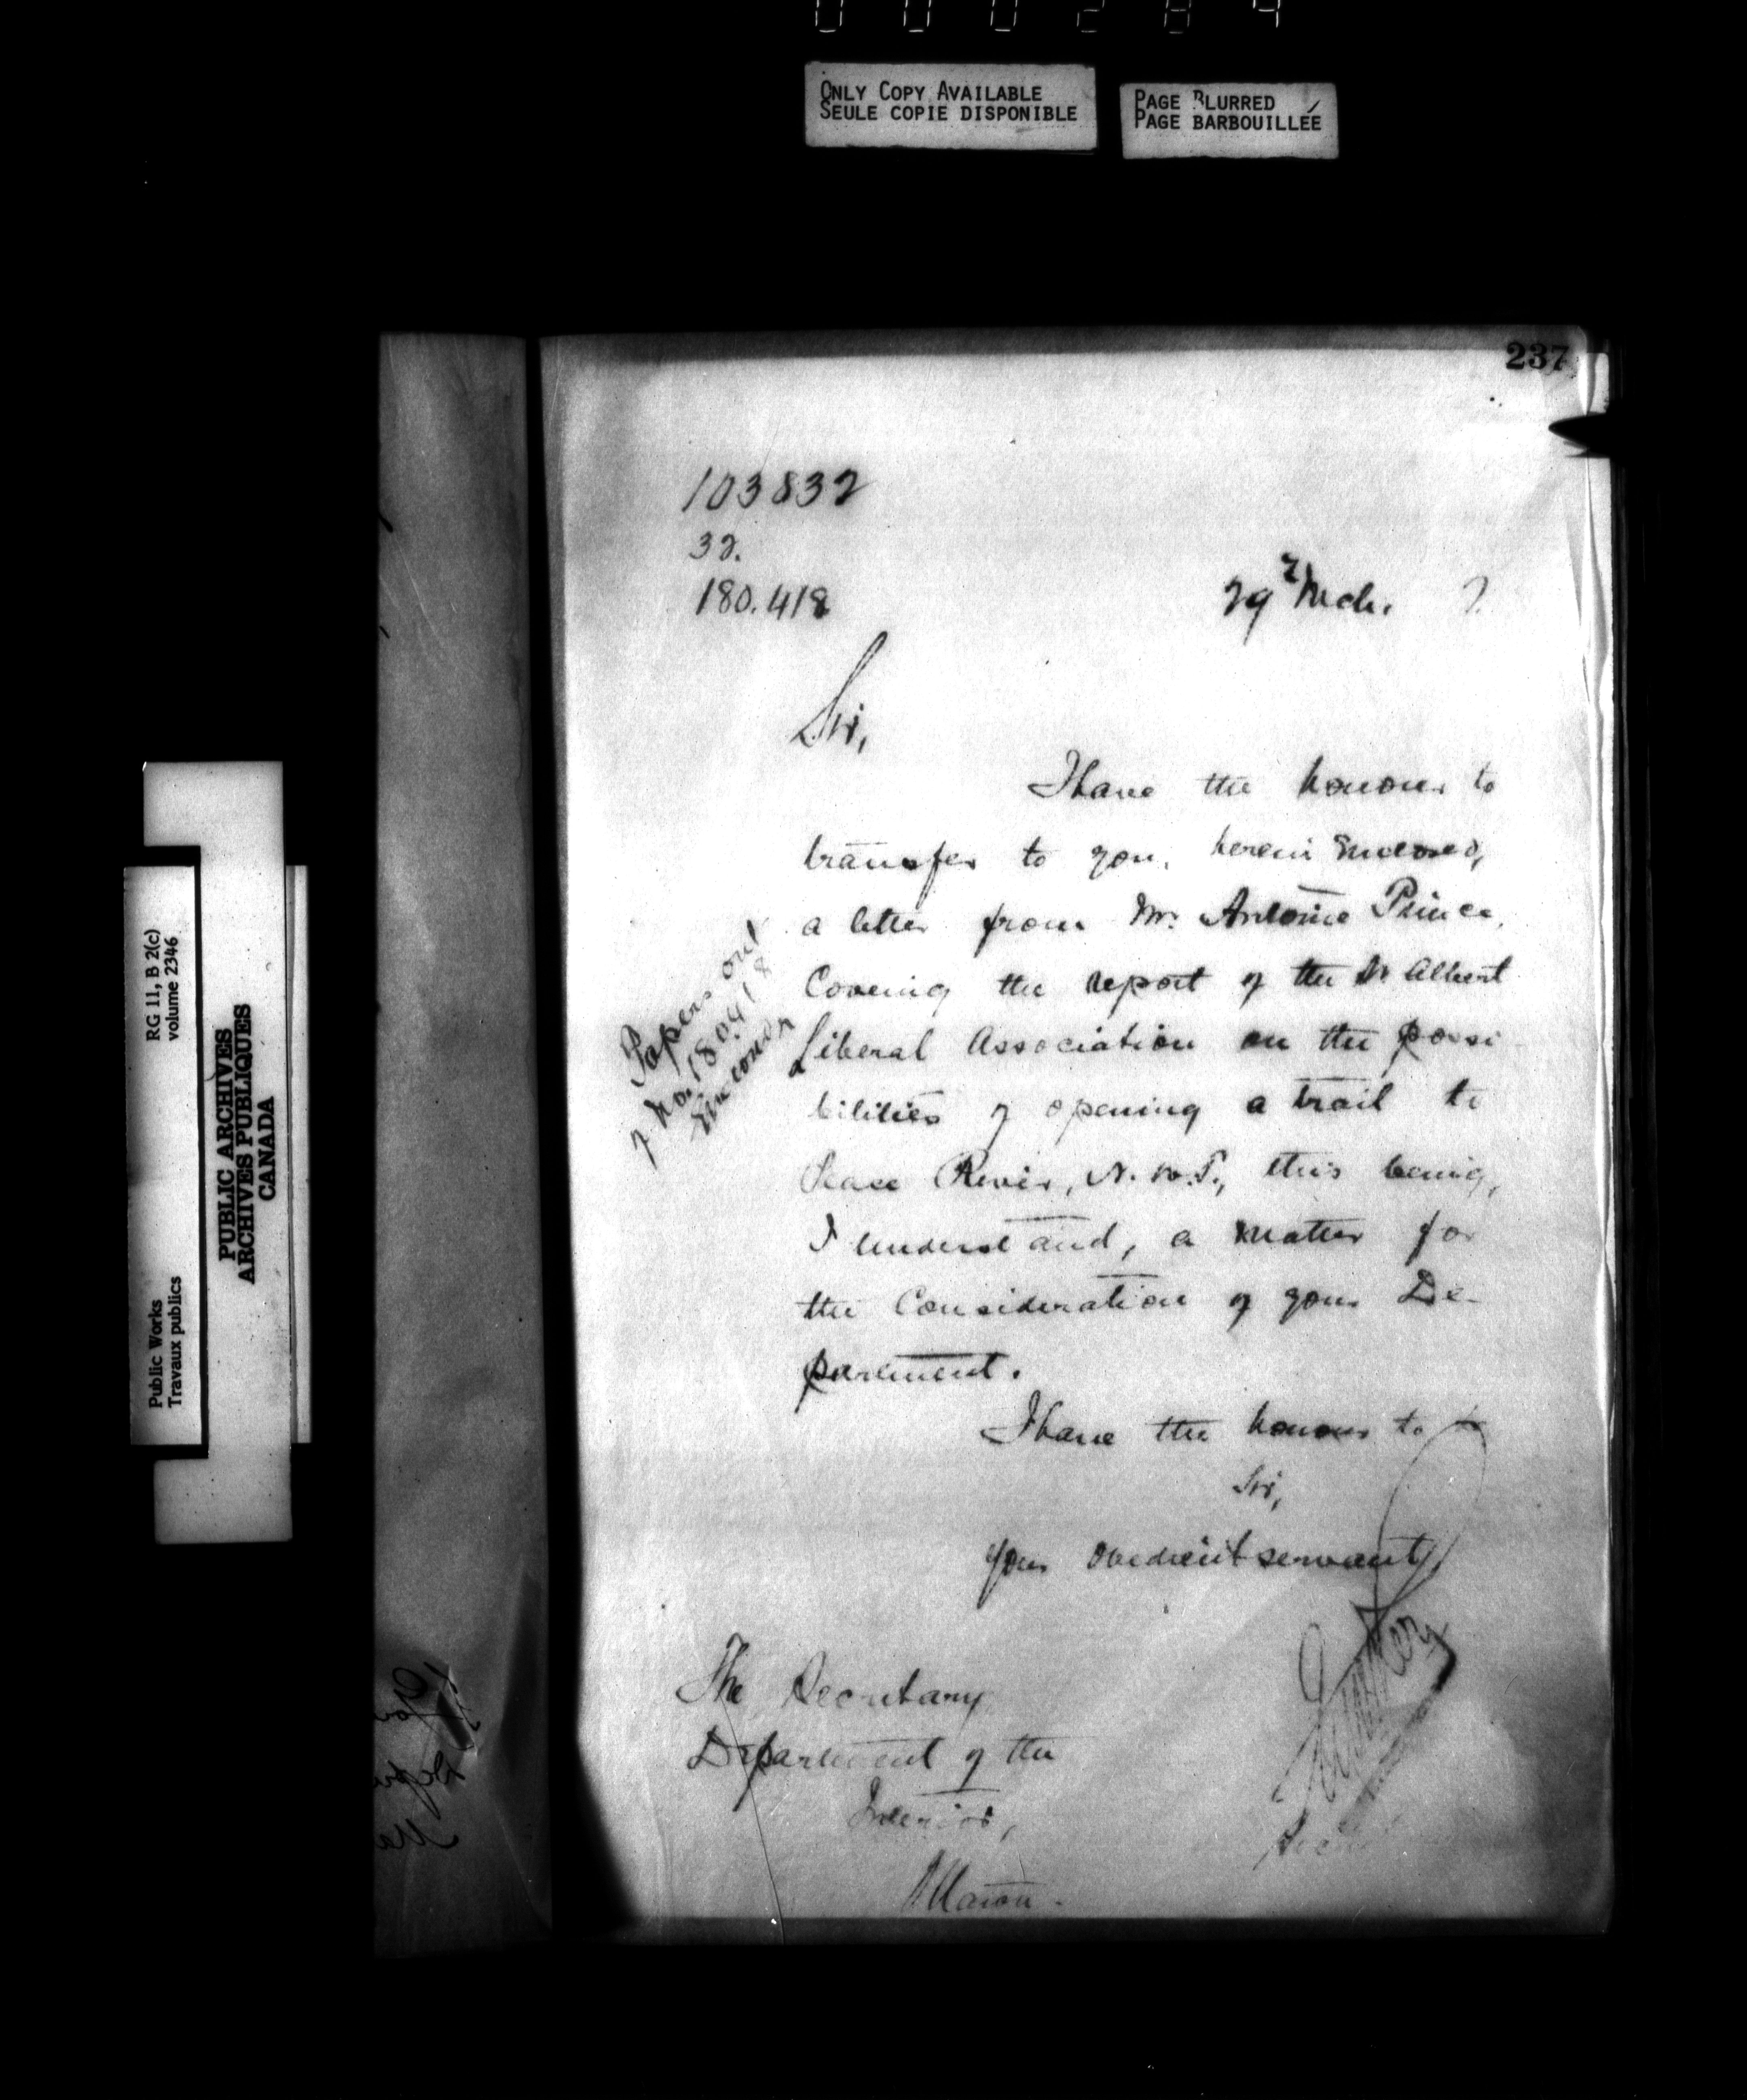 000284
ONLY COPY AVAILABLE
SEULE COPIE DISPONIBLE
PAGE BLURRED
PAGE BARBOUILLÉE
RG 11, B 2(c)
volume 2346
PUBLIC ARCHIVES
ARCHIVES PUBLIQUES
CANADA
Public Works
Travaux publics
237
103832
32.
180.418
29 Mch. 7.
Sir,
I have the honour to
transfer to you, herein enclosed,
a letter from Mr. Antoine Prince,
Covering the report of the St Albert
Liberal Association on the possi
bilities of opening a trail to
Peace River, N.W.T., this being,
I understand, a matter for
the Consideration of your De-
partment.
I have the honour to
Sir,
Your obedient servant,
Papers out
of No. 180418
The Secretary
Department of the
Interior,
Ottawa.